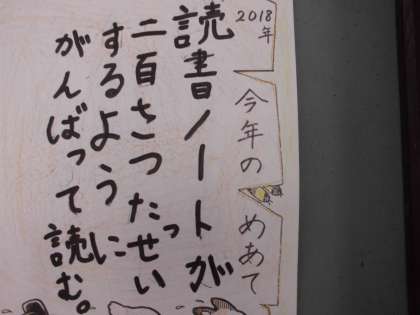 2018年
今年のめあて
読書ノートが
二百さつたっせい
するように
がんばって読む。